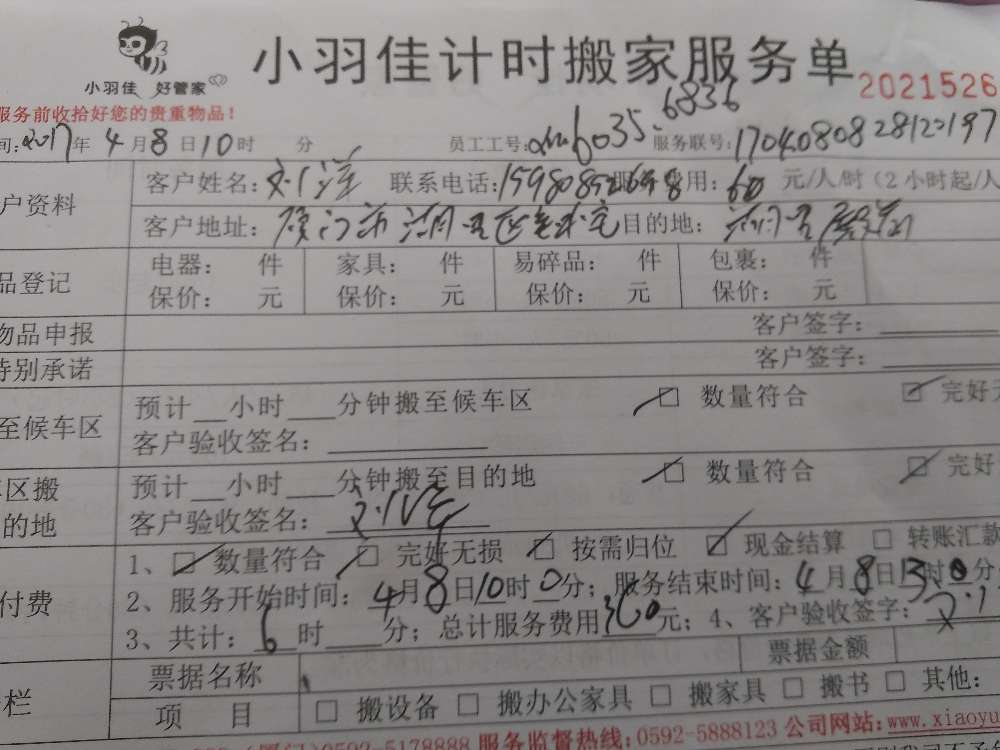 小羽佳计时搬家服务单
小羽佳 好管家
2021526
服务前收拾好您的贵重物品!
2017年4月8日10时 分 员工工号: 6035.6836 服务联号:1704080828122197
户资料 客户姓名:刘洋 联系电话: 用:60 元/人/时(2小时起/人
客户地址:厦门市湖 目的地:
品登记 电器: 件 家具: 件 易碎品: 件 包裹: 件
保价: 元 保价: 元 保价: 元 保价: 元
物品申报 客户签字:
特别承诺 客户签字:
至候车区 预计__小时___分钟搬至候车区 数量符合 完好
客户验收签名:
区搬 预计__小时___分钟搬至目的地 数量符合 完好
的地 客户验收签名:
付费 1、数量符合 完好无损 按需归位 现金结算 转账汇款
2、服务开始时间:4月8日10时0分;服务结束时间:4月8日13时0分
3、共计:6时 分;总计服务费用360元;4、客户验收签字:
栏 票据名称 票据金额
项 目 搬设备 搬办公家具 搬家具 搬书 其他:
0592-5178888 服务监督热线:0592-5888123 公司网站:www.xiaoyu